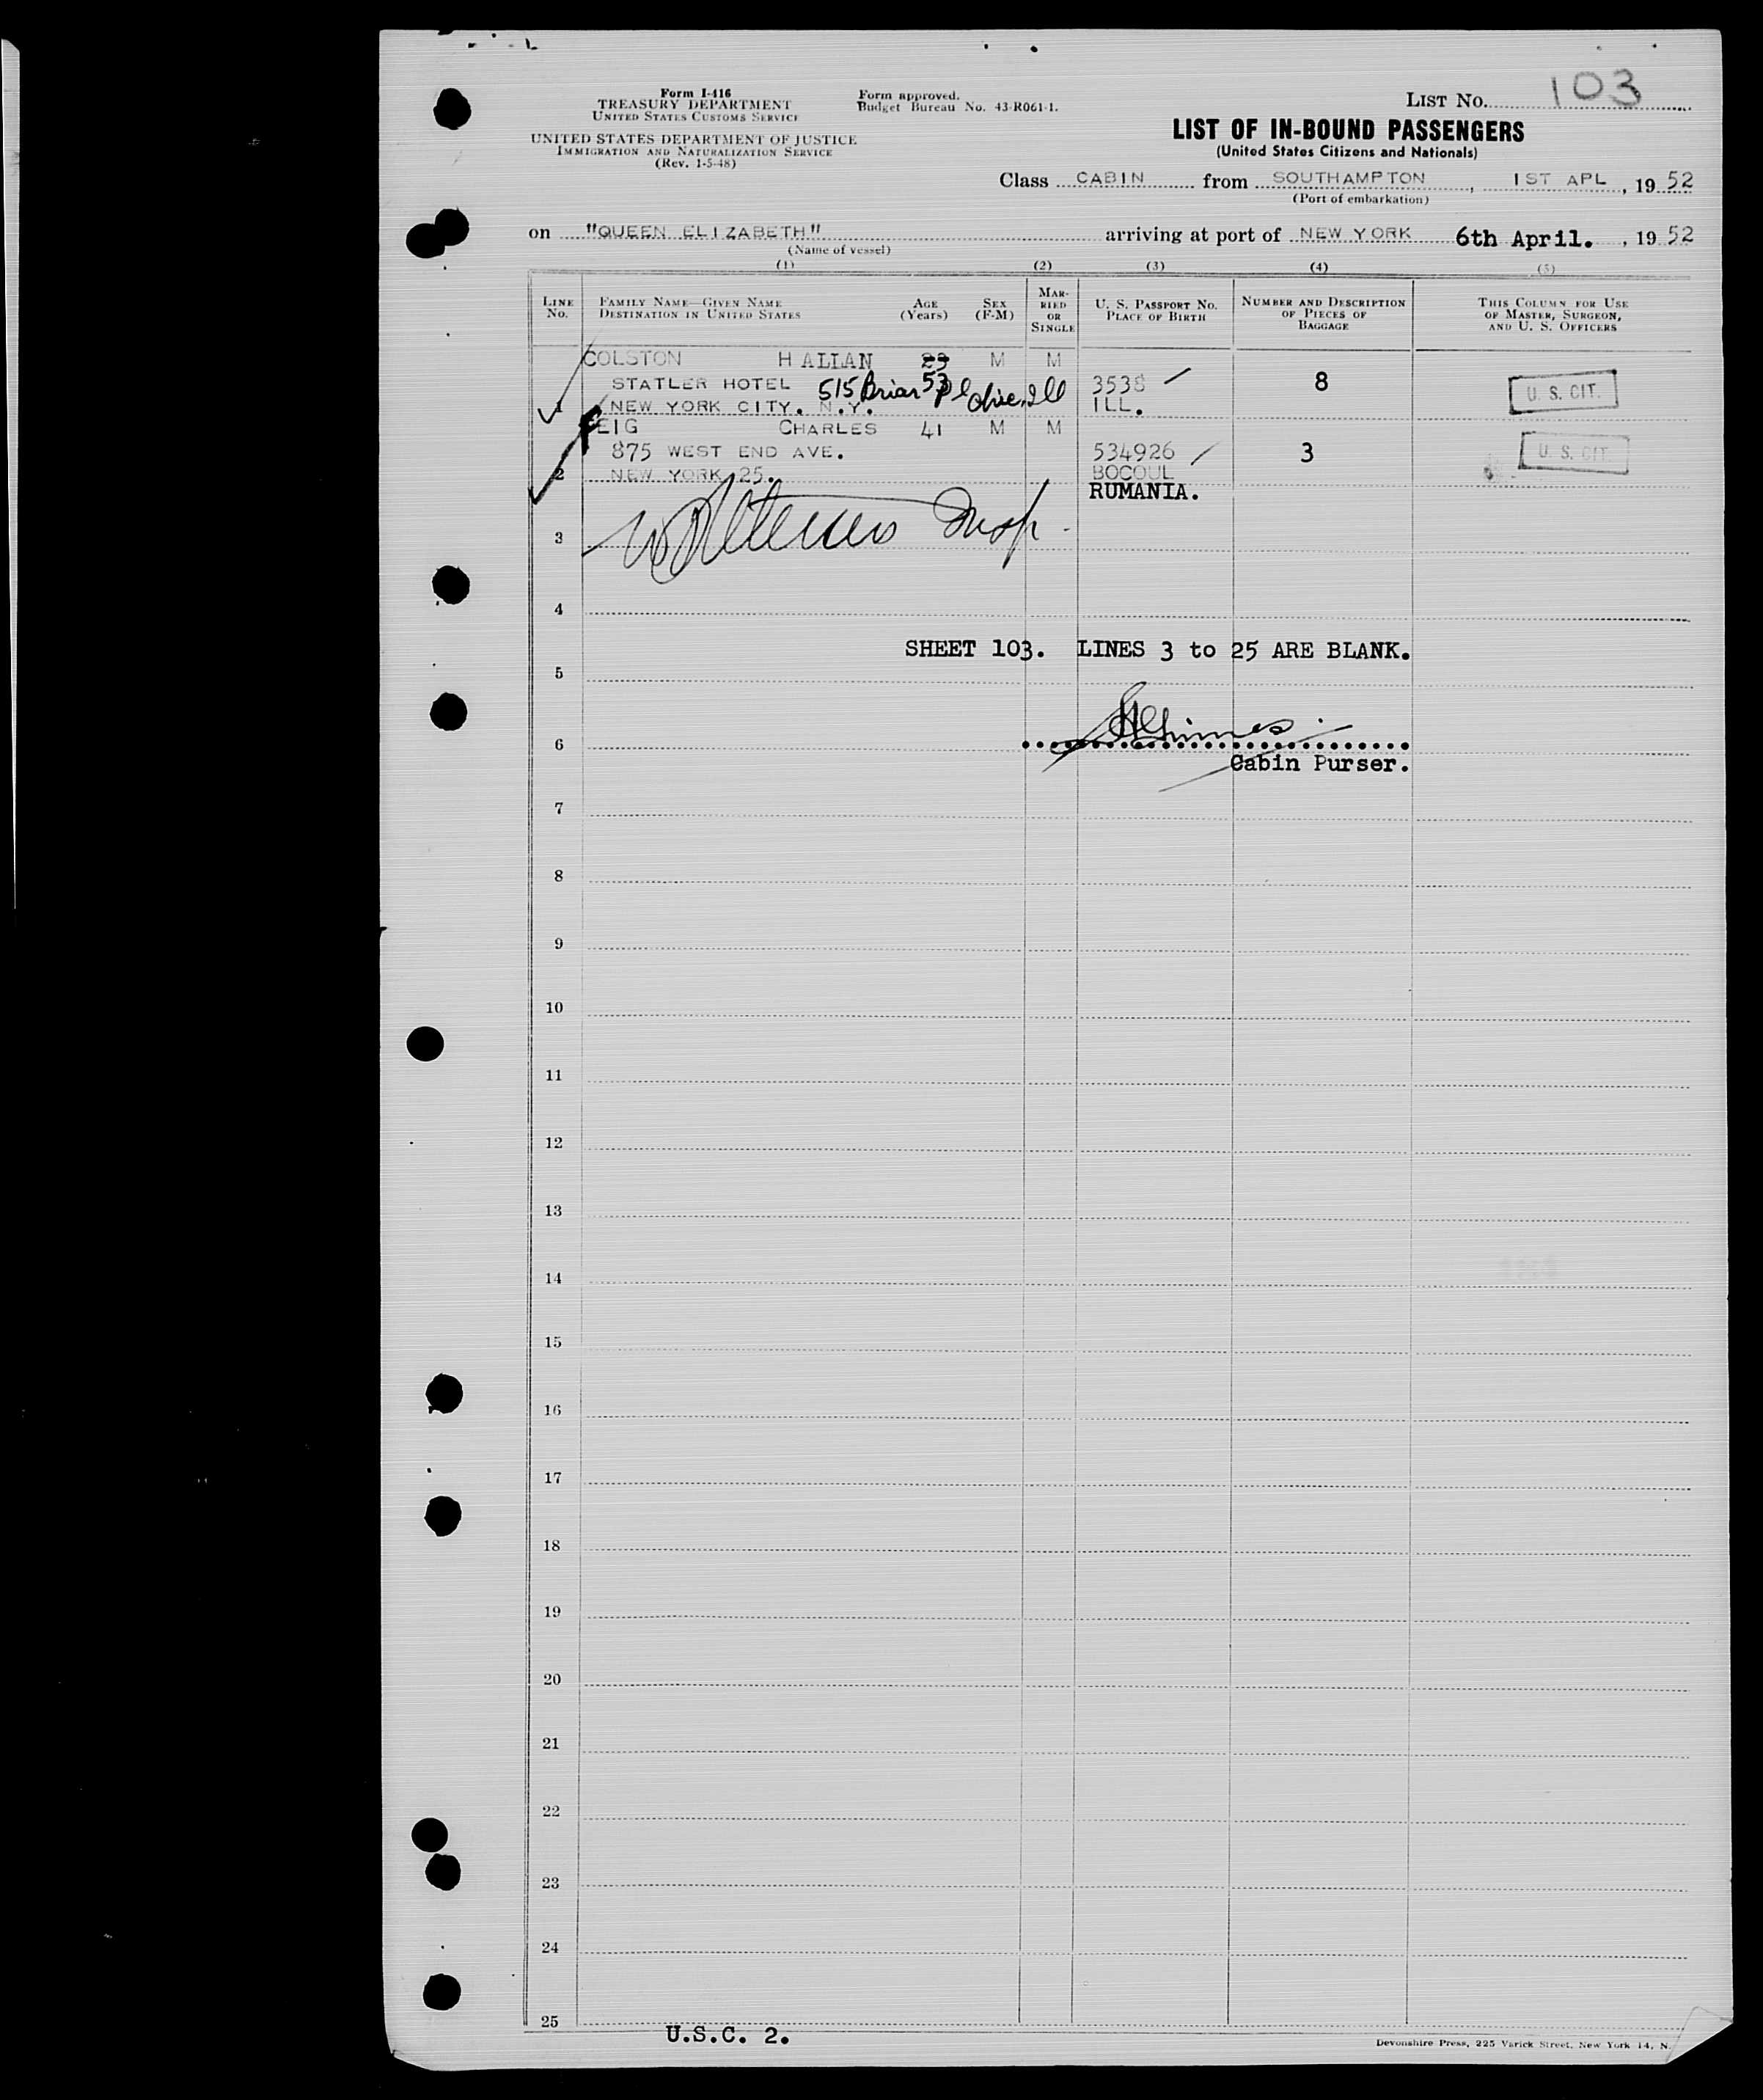 Form I-416
TREASURY DEPARTMENT
UNITED STATES CUSTOMS SERVICE
UNITED STATES DEPARTMENT OF JUSTICE
IMMIGRATION AND NATURALIZATION SERVICE
(Rev. 1-5-48)
Form approved.
Budget Bureau No. 43-R061-1.
LIST NO. 103
LIST OF IN-BOUND PASSENGERS
(United States Citizens and Nationals)
Class CABIN from SOUTHAMPTON, 1ST APL, 19 52
(Port of embarkation)
on "QUEEN ELIZABETH" arriving at port of NEW YORK 6th April., 19 52
(Name of vessel)
(1) (2) (3) (4) (5)
LINE NO. FAMILY NAME—GIVEN NAME DESTINATION IN UNITED STATES AGE (Years) SEX (F-M) MARRIED OR SINGLE U. S. PASSPORT NO. PLACE OF BIRTH NUMBER AND DESCRIPTION OF PIECES OF BAGGAGE THIS COLUMN FOR USE OF MASTER, SURGEON, AND U. S. OFFICERS
COLSTON H ALLAN 23 M M
STATLER HOTEL 515 Briar Pl 53 3538 8 U. S. CIT.
1 NEW YORK CITY. N.Y. Ill ILL.
FEIG CHARLES 41 M M
875 WEST END AVE. 534926 3 U. S. CIT.
2 NEW YORK 25. BOCOUL
RUMANIA.
3 Insp.
4
SHEET 103. LINES 3 to 25 ARE BLANK.
5
6
Cabin Purser.
7
8
9
10
11
12
13
14
15
16
17
18
19
20
21
22
23
24
25
U.S.C. 2.
Devonshire Press, 225 Varick Street, New York 14, N.